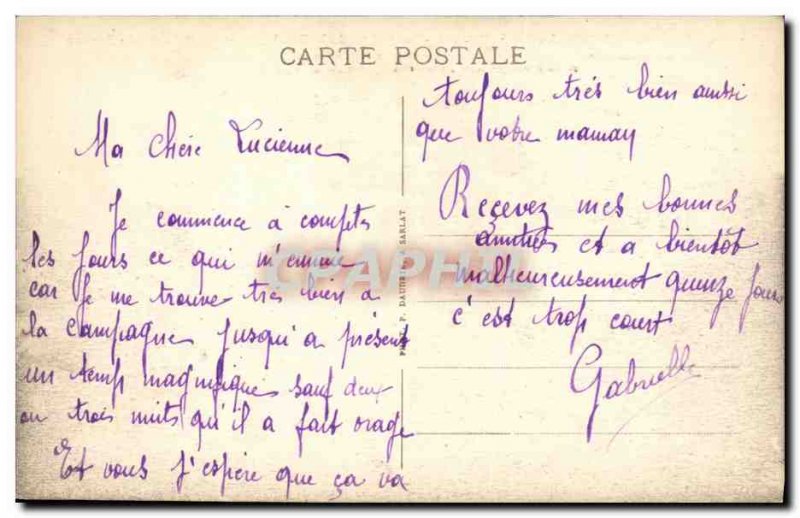 CARTE POSTALE
Ma Chère Lucienne
Je commence à compter
les jours ce qui m'ennuie
car Je me trouve très bien a
la campagne Jusqu'a présent
un temps magnifique sauf deux
ou trois nuits qu'il a fait orage
Et vous J'espère que ça va
toujours très bien aussi
que votre maman
Reçevez mes bonnes
amitiés et a bientôt
malheureusement quinze jours
c'est trop court
Gabrielle
SARLAT
CPAPHIL